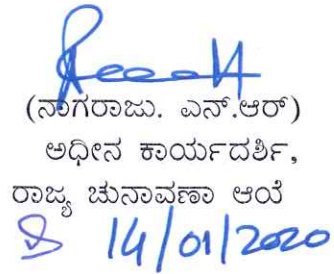 (ನಾಗರಾಜು. ಎನ್.ಆರ್)
ಅಧೀನ ಕಾರ್ಯದರ್ಶಿ,
ರಾಜ್ಯ ಚುನಾವಣಾ ಆಯೆ
14/01/2020